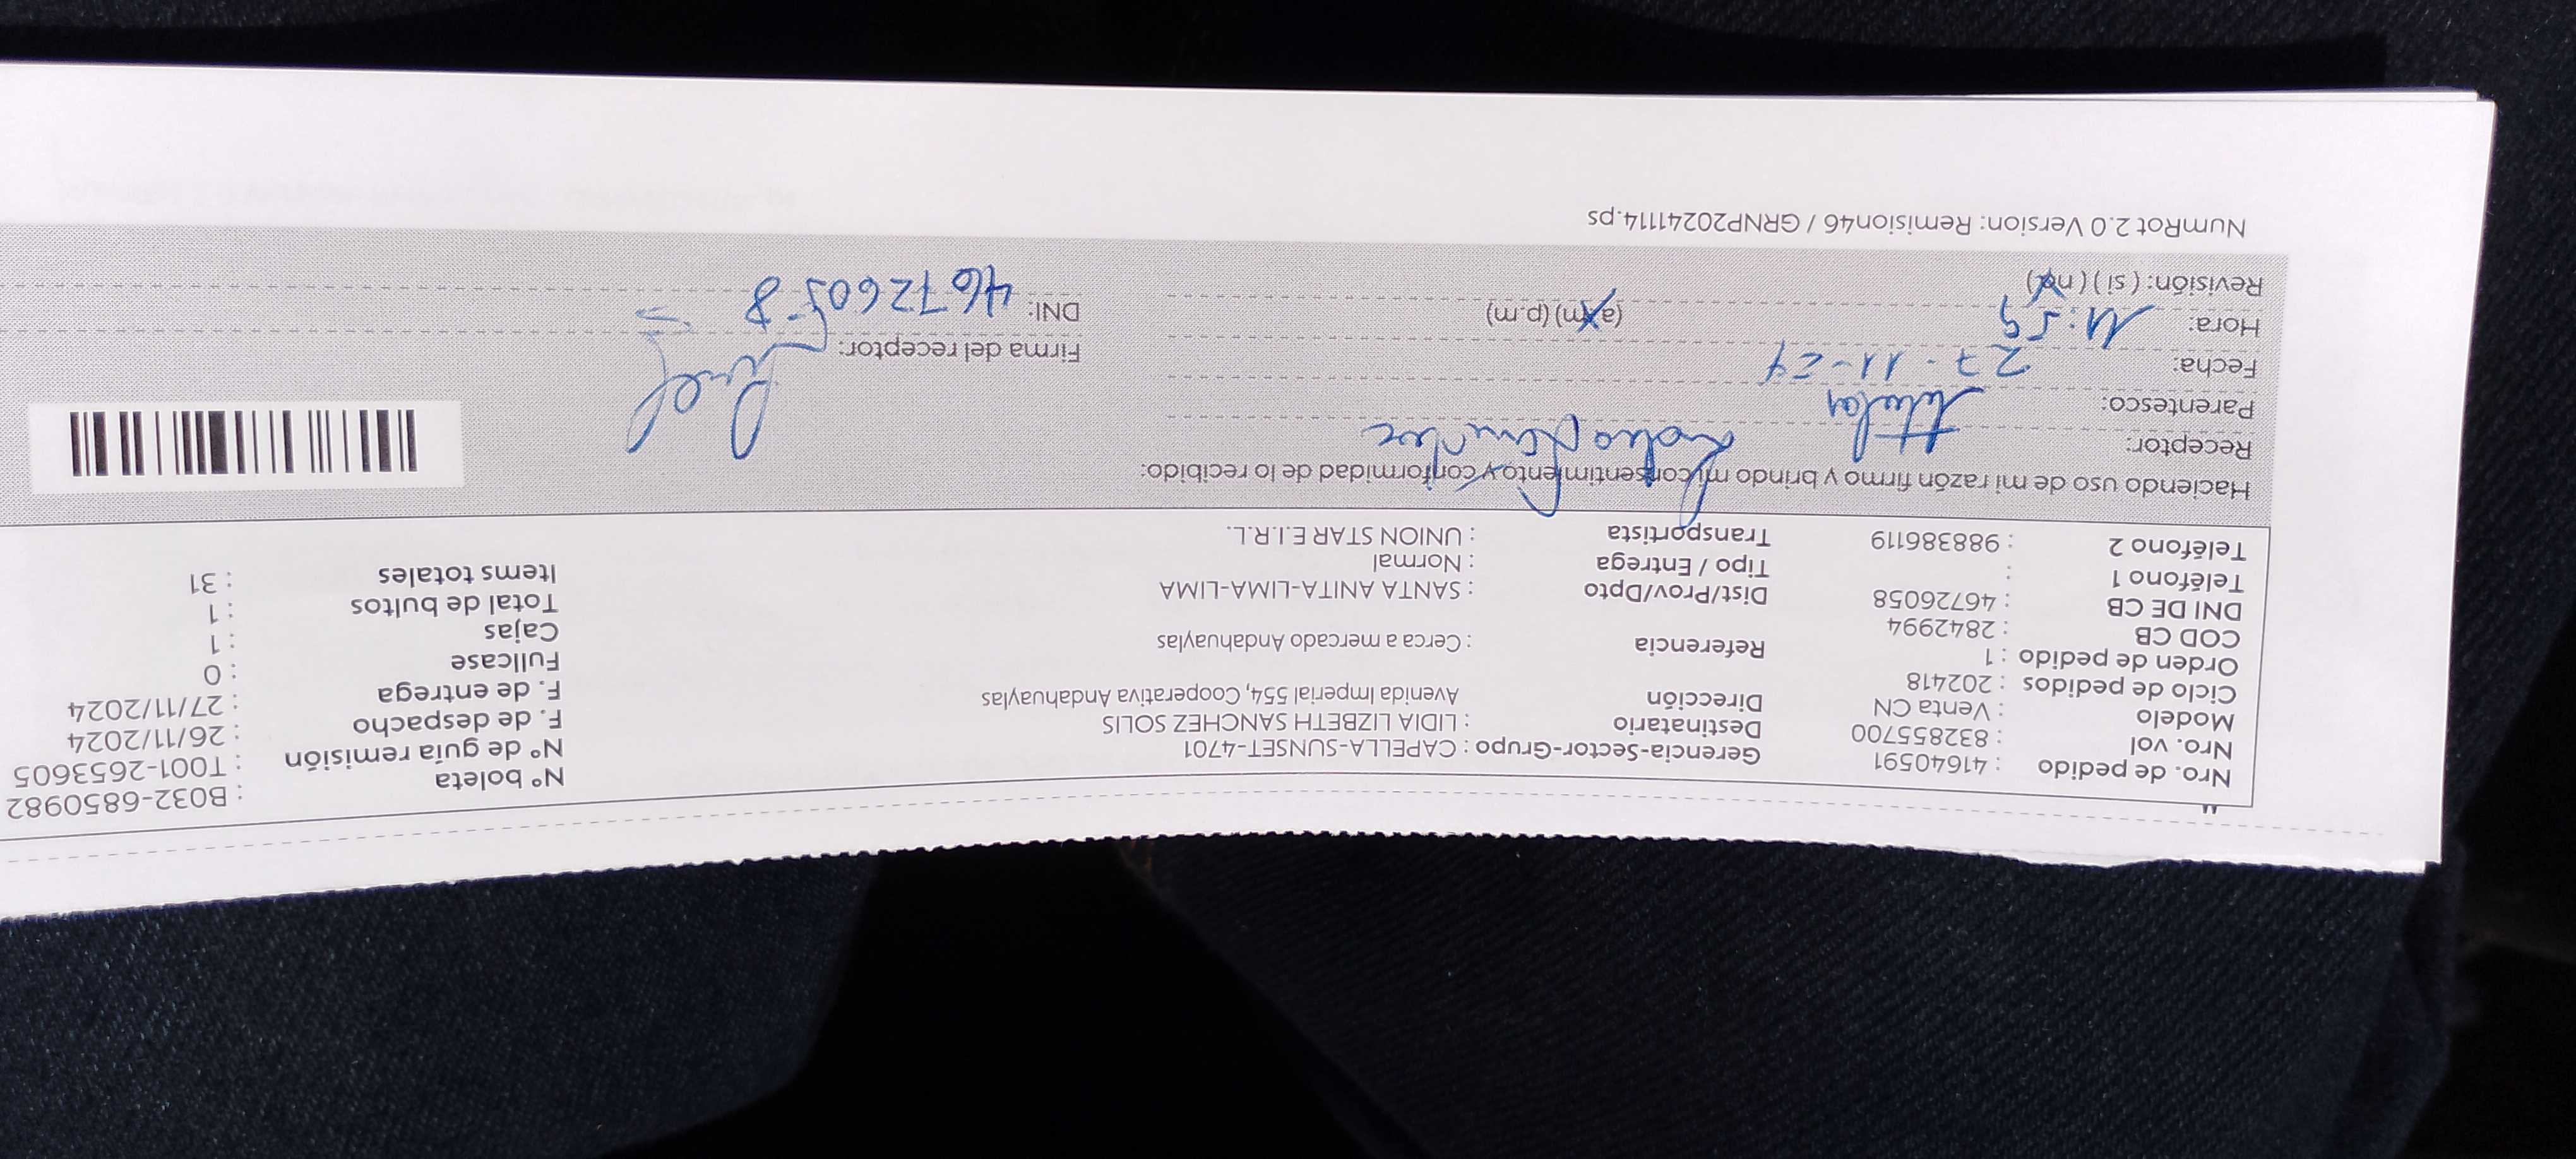 Nro. de pedido : 41640591 Gerencia-Sector-Grupo : CAPELLA-SUNSET-4701 N° boleta : B032-6850982
Nro. vol : 832855700 Destinatario : LIDIA LIZBETH SANCHEZ SOLIS N° de guía remisión : T001-2653605
Modelo : Venta CN Dirección Avenida Imperial 554, Cooperativa Andahuaylas F. de despacho : 26/11/2024
Ciclo de pedidos : 202418 F. de entrega : 27/11/2024
Orden de pedido : 1 Referencia : Cerca a mercado Andahuaylas Fullcase : 0
COD CB : 2842994 Cajas : 1
DNI DE CB : 46726058 Dist/Prov/Dpto : SANTA ANITA-LIMA-LIMA Total de bultos : 1
Teléfono 1 : Tipo / Entrega : Normal Items totales : 31
Teléfono 2 : 988386119 Transportista : UNION STAR E.I.R.L.
Haciendo uso de mi razón firmo y brindo mi consentimiento y conformidad de lo recibido:
Receptor:
Parentesco: titular
Fecha: 27-11-24 Firma del receptor:
Hora: 11:59 (a.m) (p.m) DNI: 46726058
Revisión: (si) (no)
NumRot 2.0 Version: Remision46 / GRNP20241114.ps